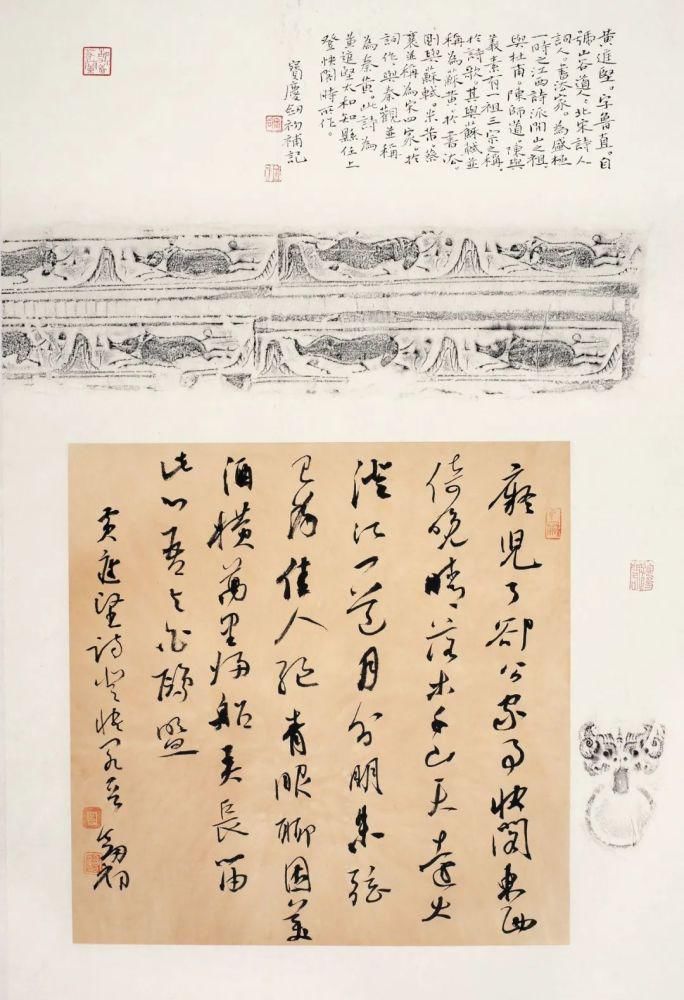 黄庭堅。字魯直。自
號山谷道人。北宋詩人
詞人。書法家。為盛極
一時之江西詩派開山之祖。
與杜甫。陳師道。陳與
義素有一祖三宗之稱。
於詩歌。其與蘇軾並
稱為蘇黄。於書法。
則與蘇軾。米芾。蔡
襄並稱為宋四家。於
詞作。與秦觀並稱
為秦黄。此詩為
黄庭堅太和知縣任上
登快閣時所作。
寶慶劬初補記
癡兒了卻公家事快閣東西
倚晚晴落木千山天遠大
澄江一道月分明朱弦
已為佳人絕青眼聊因美
酒橫萬里歸船弄長笛
此心吾與白鷗盟
黄庭堅詩登快閣 劬初